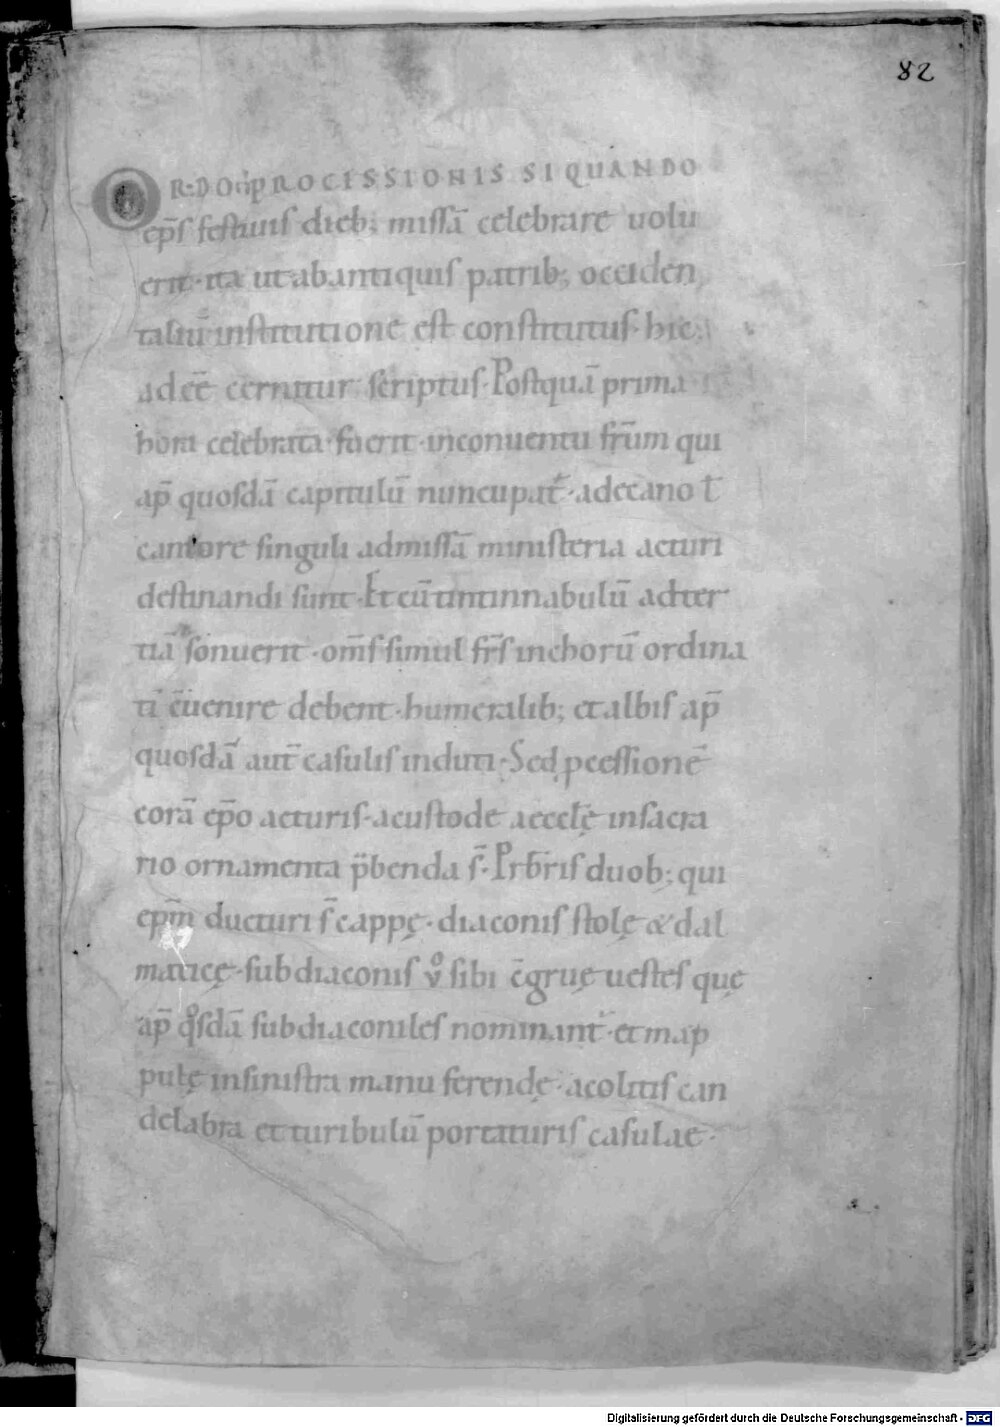 82
ORDO PROCESSIONIS SI QUANDO
ep̄s festiuis dieb; missā celebrare uolu
erit · ita ut ab antiquis patrib; occiden
taliū institutione est constitutus · hic
ad eē cernitur scriptus · Postquā prima
hora celebrata fuerit · in conuentu fr̄um qui
ap̄ quosdā capitulū nuncupat̄ · a decano ł
cantore singuli ad missā ministeria acturi
destinandi sunt · Et cū tintinnabulū ad ter
tiā sonuerit · om̄s simul fr̄s in chorū ordina
ti c̄uenire debent · humeralib; et albis ap̄
quosdā aut̄ casulis induti · Sed ꝓcessionē
corā ep̄o acturis · a custode aeccłę in sacra
rio ornamenta p̄benda s̄ · Prb̄ris duob; qui
ep̄m ducturi s̄ cappę · diaconis stolę & dal
maticę · subdiaconis v̊ sibi c̄gruę uestes quę
ap̄ qͦsdā subdiaconiles nominant̄ · et map
pulę in sinistra manu ferendę · acolitis can
delabra et turibulū portaturis casulae ·
Digitalisierung gefördert durch die Deutsche Forschungsgemeinschaft - DFG